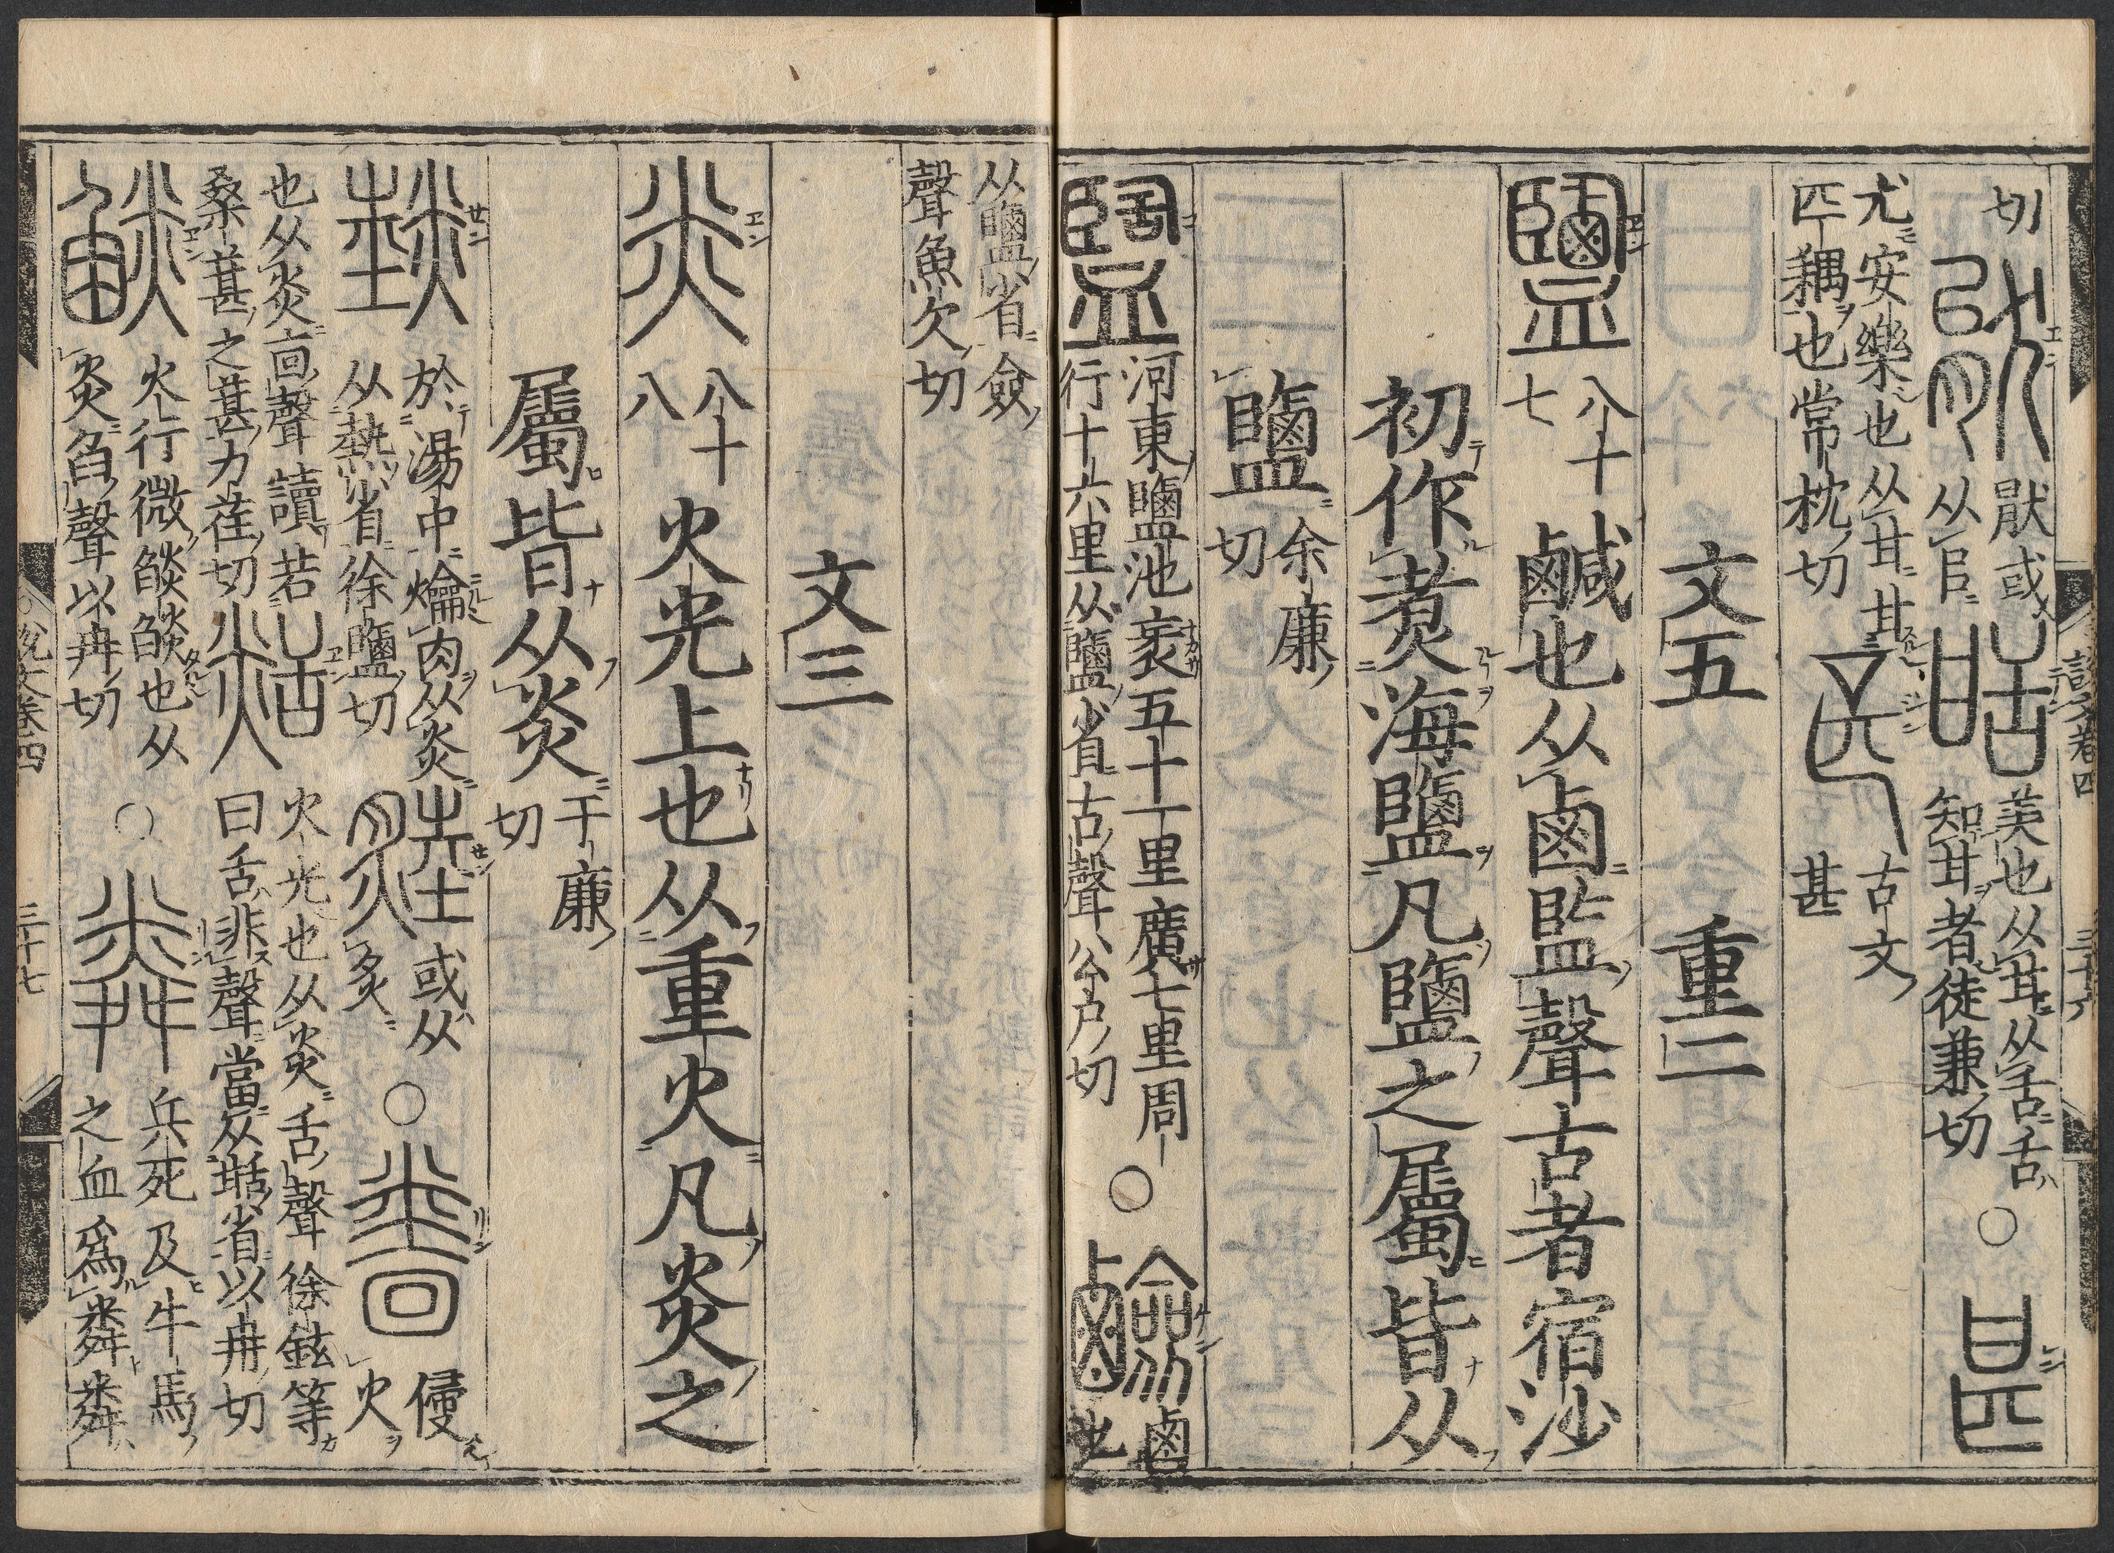 切
厭或
从肙
美也从甘从舌舌
知甘者徒兼切
〇
尤安樂也从甘甘
匹耦也常枕切
古文
甚
文五 重二
八十
七
鹹也从鹵監聲古者宿沙
初作煑海鹽凡鹽之屬皆从
鹽
余廉
切
河東鹽池袤五十一里廣七里周
行十六里从鹽省古聲公戶切
〇
鹵
也
从鹽省僉
聲魚欠切
文三
炎
八十
八
火光上也从重火凡炎之
屬皆从炎
于廉
切
於湯中爚肉从炎
从熱省徐鹽切
或从
炙
〇
侵
火
也从炎㐭聲讀若
桑葚之葚力荏切
火光也从炎舌聲徐鉉等
曰舌非聲當从甛省以冉切
火行微燄燄也从
炎臽聲以冉切
〇
兵死及牛馬
之血爲粦粦
說文卷四
三十六
說文卷四
三十七